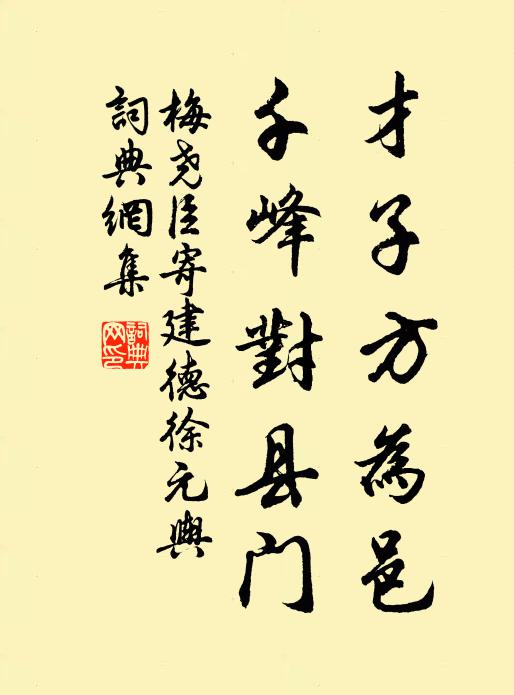 才子方為邑
千峰對县门
梅尧臣寄建德徐元輿
詞典網集
詞典网印